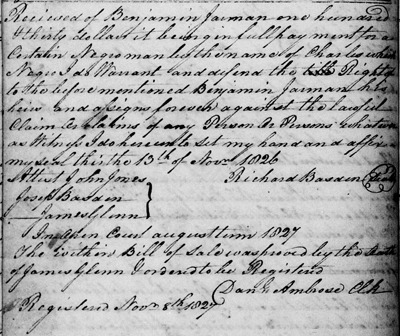 Recieved of Benjamin Jarman one hundred
& thirty Dollars it being in full payment for a
Certain Negro man by the name of Charles which
Negro I do Warrant and defend the Right of
to the before mentioned Benjamin Jarman his
heirs and assigns forever against the lawful
Claim or Claims of any Person or Persons whatever
as Witness I do hereunto Set my hand and affix
my seal this the 13th of Novr 1826
Attest John Jones Richard Basden Seal
Joseph Basden
James Glenn
In open Court august term 1827
The within Bill of Sale was proved by the Oath
of James Glenn & ordered to be Registered
Danl Ambrose Clk
Registered Novr 8th 1827